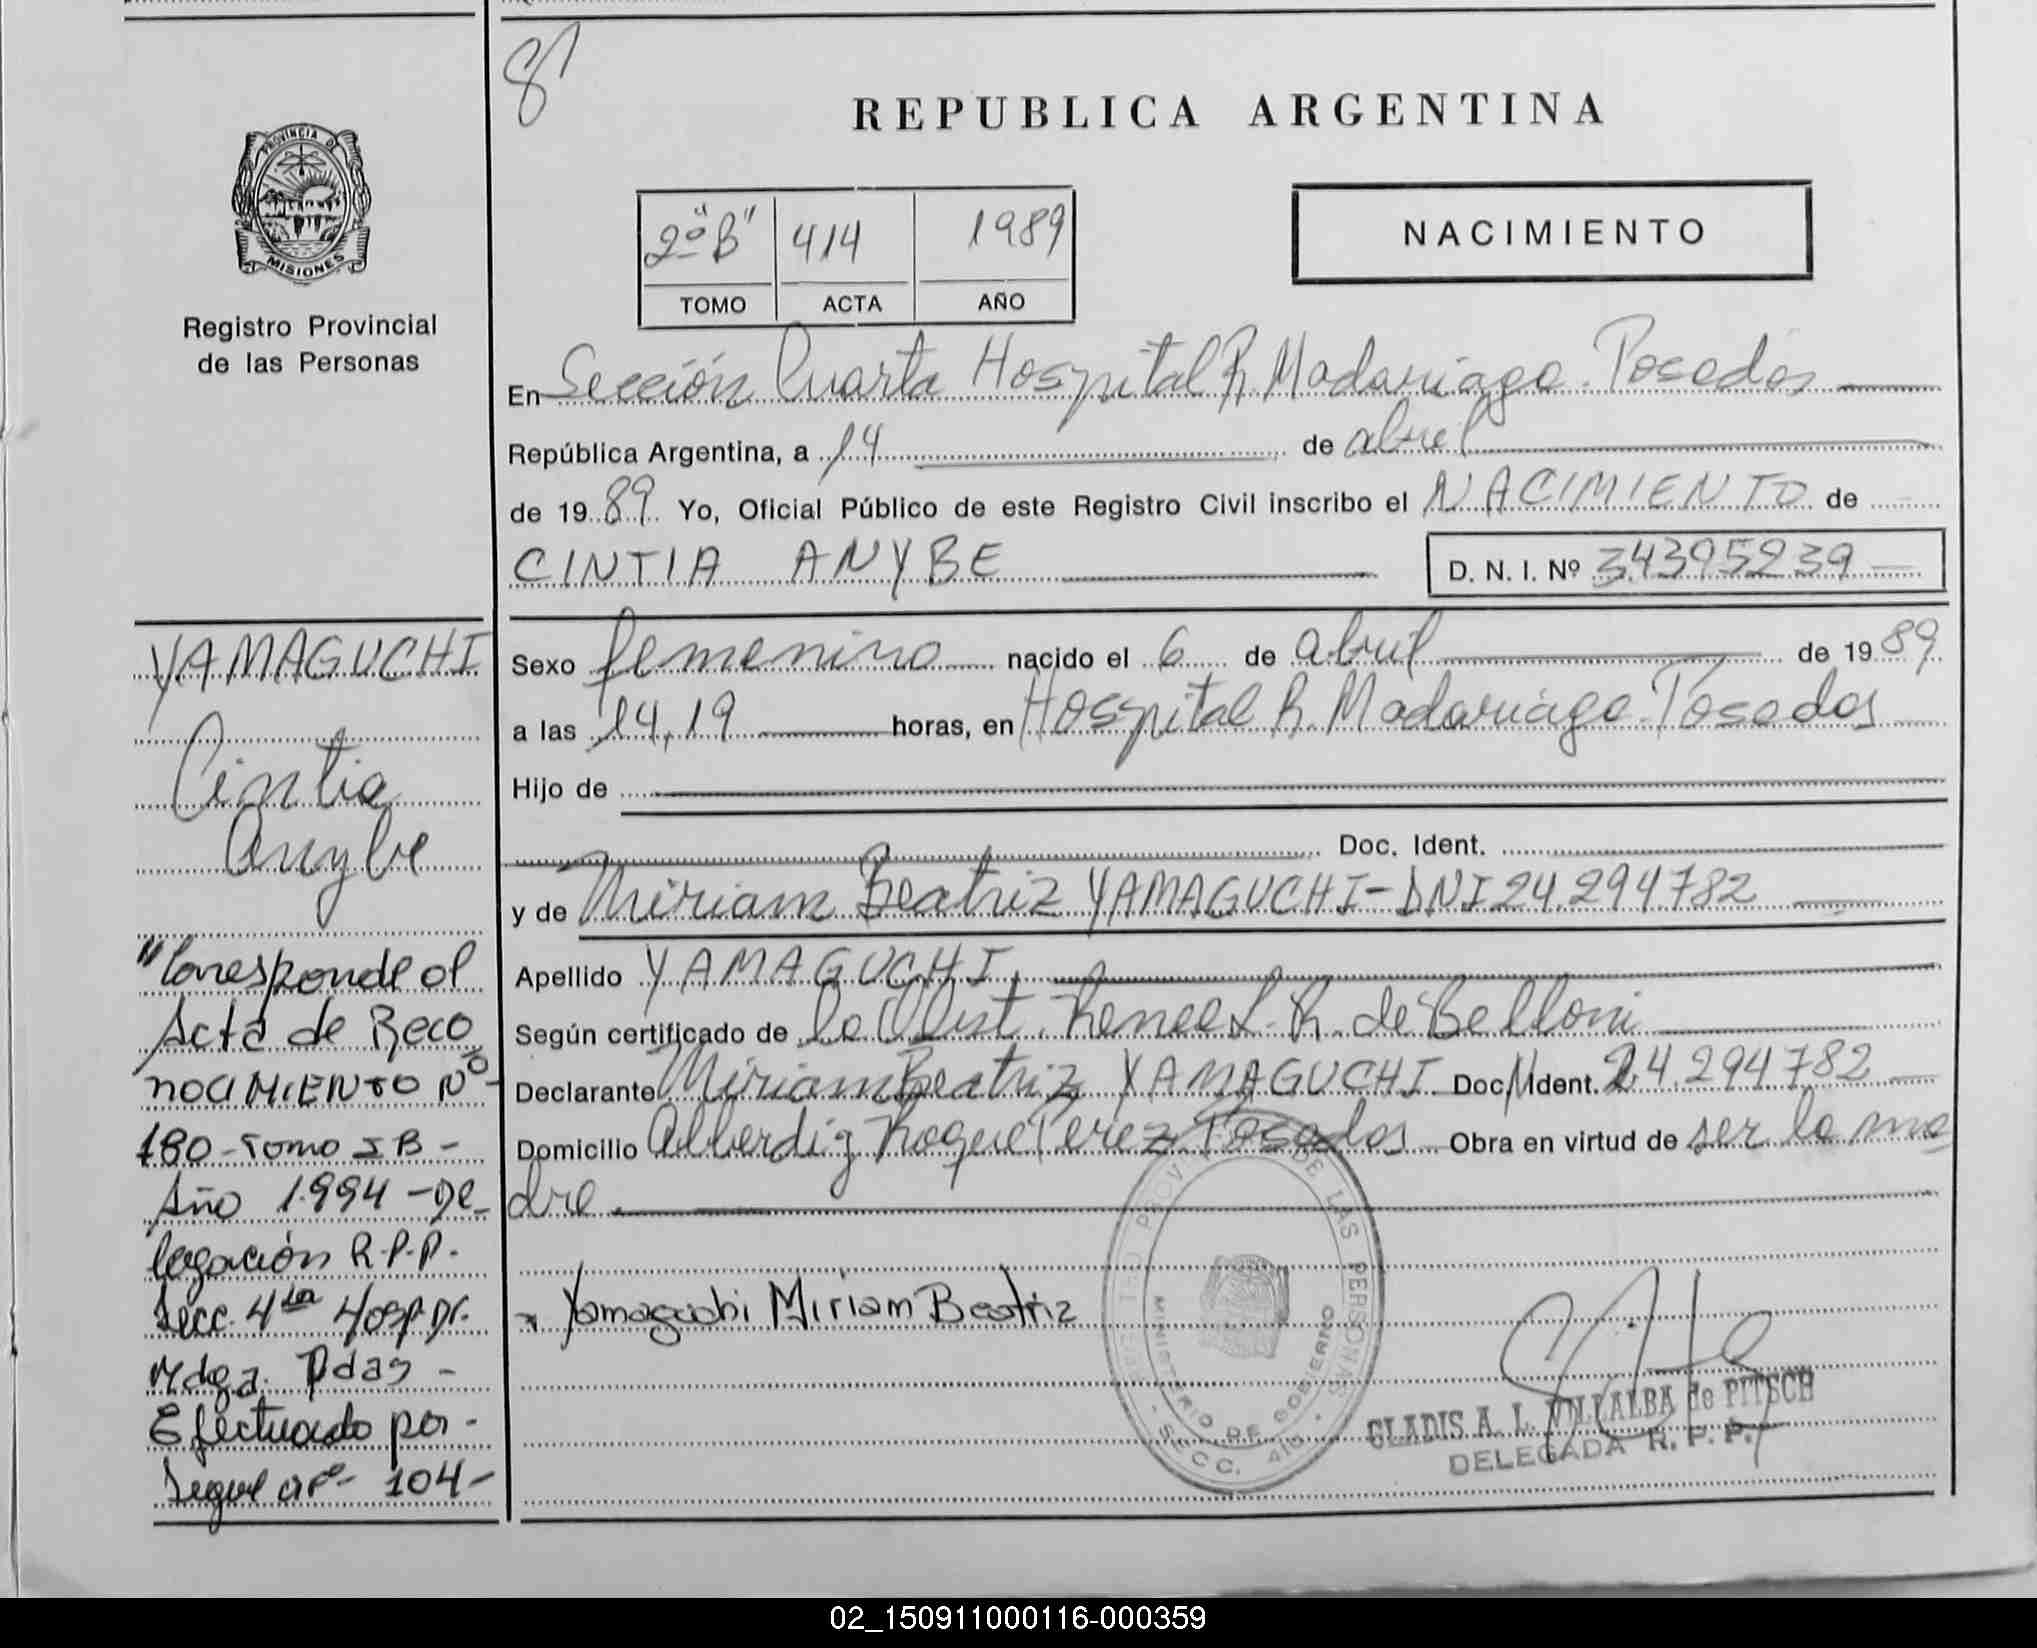 8
REPUBLICA ARGENTINA
PROVINCIA DE
MISIONES
Registro Provincial
de las Personas
2º "B" 414 1989
TOMO ACTA AÑO
NACIMIENTO
En Sección Cuarta Hospital R. Madariaga. Posadas
República Argentina, a 14 de abril
de 1989 Yo, Oficial Público de este Registro Civil inscribo el NACIMIENTO de
CINTIA ANYBE D. N. I. Nº 34395239
Sexo femenino nacido el 6 de abril de 1989
a las 14,19 horas, en Hospital R. Madariaga. Posadas
Hijo de
Doc. Ident.
y de Miriam Beatriz YAMAGUCHI - DNI 24.294782
Apellido YAMAGUCHI
Según certificado de la Obst. Renee L. R. de Belloni
Declarante Miriam Beatriz YAMAGUCHI Doc. Ident. 24.294782
Domicilio Alberdi y Roque Perez. Posadas Obra en virtud de ser la ma
dre
Yamaguchi Miriam Beatriz
DE LAS PERSONAS
MINISTERIO DE GOBIERNO
SECC. 4ta
GLADIS A. L. VILLALBA de PITSCH
DELEGADA R. P. P.
YAMAGUCHI
Cintia
Anybe
"Corresponde al
Acta de Reco
nocIMIENTO Nº-
180 - Tomo I B -
Año 1.994 - De_
legación R.P.P.
Secc. 4ta Hosp. Dr.
Mdga. Pdas -
Efectuado por -
Segue a fº- 104 -
02_150911000116-000359